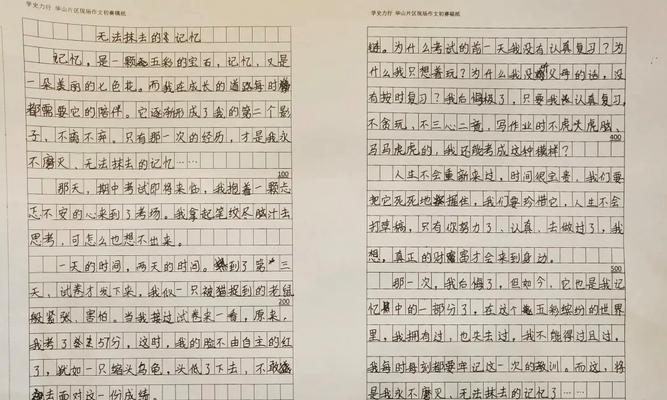 学史力行 华山片区现场作文初赛稿纸
无法抹去的记忆
记忆。是一颗五彩的宝石，记忆，又是
一朵美丽的七色花。而我在成长的道路每时
都需要它的陪伴。它逐渐形成了我的第二个影
子，不离不弃。只有那一次的经历，才是我永
不磨灭、无法抹去的记忆……
100
那天，期中考试即将来临，我抱着一颗忐
忑不安的心来到了考场。我拿起笔绞尽脑汁去
思考，可怎么也想不出来。
一天的时间，两天的时间。到了第三
天，试卷才发下来，我似一只被猫捉到的老鼠
200
般紧张、害怕。当我接过试卷来一看，原来，
我考了57分，这时，我的脸不由自主的红
了，犹如一只缩头乌龟，头低了下去，不敢
去面对这一份成绩。
学史力行 华山片区现场作文初赛稿纸
链。为什么考试的前一天我没有认真复习？为
什么我只想着玩？为什么我没父母的话，没
有按时复习？我后悔极了，只要我认真复习，
不贪玩，不三心二意，写作业时不虎头虎脑、
400
马马虎虎的，我还能考成这种模样？
人生不会重新来过，时间很宝贵，我们要
把它死死地握住，我们要珍惜它，人生不会
打草稿，只有你努力了、认真、去做过了，我
想，真正的财富才会来到身边。
500
那一次，我后悔了，但如今，它也是我记
忆中的一部分了，在这个五彩缤纷的世界
里，我拥有过，也失去过，我不能得过且过，
我每时每刻都要牢记这一次的教训。而这，将
是我永不磨灭、无法抹去的记忆了……